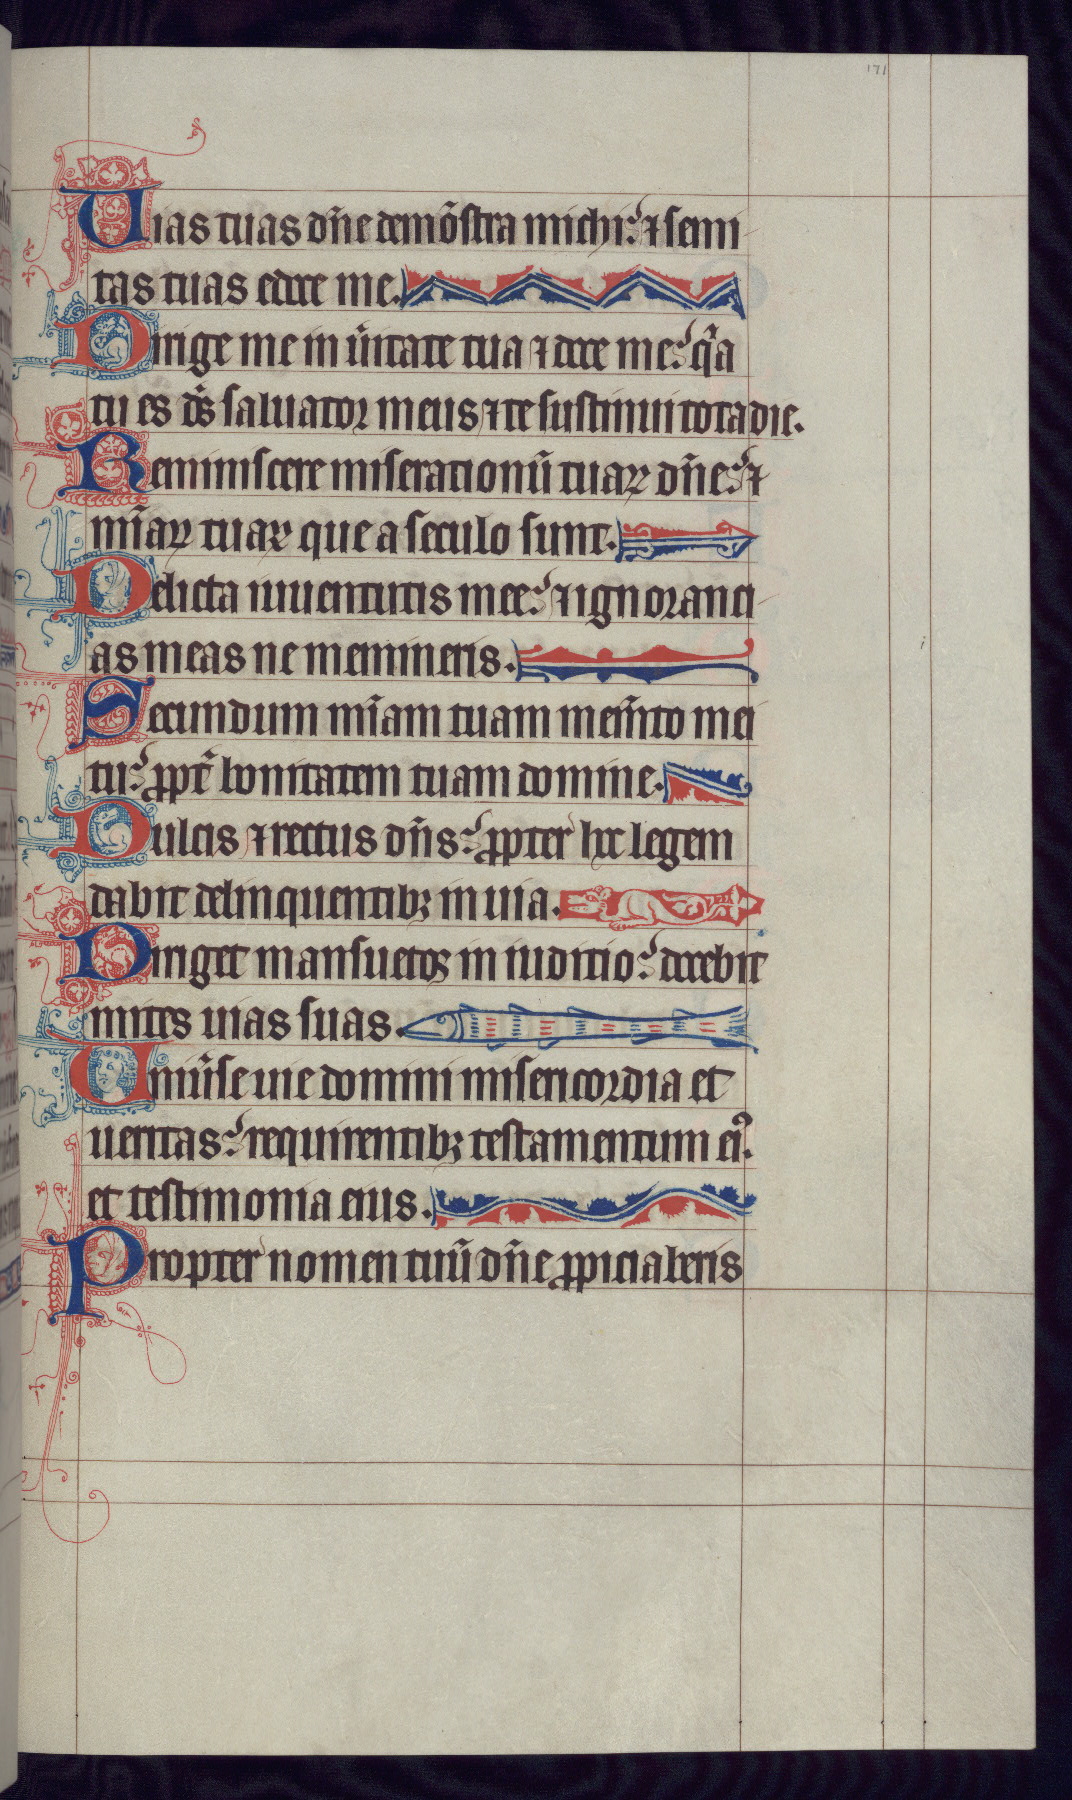 171
Uias tuas dñe demõstra michi: ⁊ semi
tas tuas edoce me.
Dirige me in ũitate tua ⁊ doce me: q̃a
tu es ds̃ saluator meus ⁊ te sustinui tota die.
Reminiscere miserationũ tuaꝝ dñe: ⁊
mĩaꝝ tuaꝝ que a seculo sunt.
Delicta iuuentutis mee: ⁊ ignoranci
as meas ne memineris.
Secundum mĩam tuam mem̃to mei
tu: ꝓpt̃ bonitatem tuam domine.
Dulcis ⁊ rectus dñs: ꝓpter hoc legem
dabit delinquentibꝫ in uia.
Diriget mansuetos in iuditio: docebit
mites uias suas.
Uniũse uie domini misericordia et
ueritas: requirentibꝫ testamentum eiꝰ.
et testimonia eius.
Propter nomen tuũ dñe ꝓpiciaberis